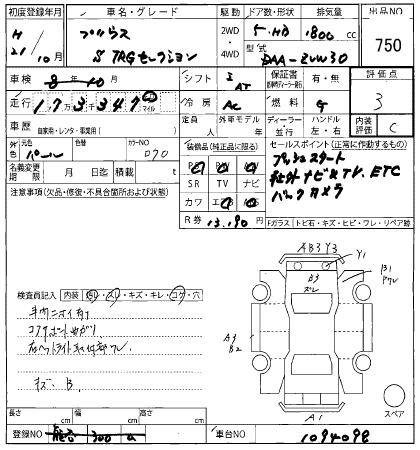 初度登録年月 車名・グレード 駆動 ドア数・形状 排気量 出品NO
H 21/10月 プリウス 2WD・4WD 5・HB 1800cc 750
S TRGセレクション 型式 DAA-ZVW30
車検 8年10月 シフト I AT 保証書 有・無 評価点
走行 1 7万3 3 4 7 km マイル 冷房 AC 燃料 G 3
車歴 自家用・レンタ・事業用( ) 定員 人 外車モデル 年 ディーラー 並行 ハンドル 左・右 内装評価 C
元色 パール 色替 カラーNO 070 装備品(純正品に限る) セールスポイント(正常に作動するもの)
名義変更期限 月 日迄 積載 t PS PW AW プッシュスタート
注意事項(欠品・修復・不具合箇所および状態) SR TV ナビ 社外ナビ&TV、ETC
カワ エアB バックカメラ
R券 13,190円 Fガラス トビ石・キズ・ヒビ・ワレ・リペア跡
AB3Y3 Y1
A3 ズレ B1 ワレ
検査員記入 内装 汚レ・スレ・キズ・キレ・コゲ・穴
車内ニオイ有り
A3
B2
キズ、B
A1 スペア
長さ cm 幅 cm 高さ cm
登録NO 熊谷 300 a 車台NO 1094098